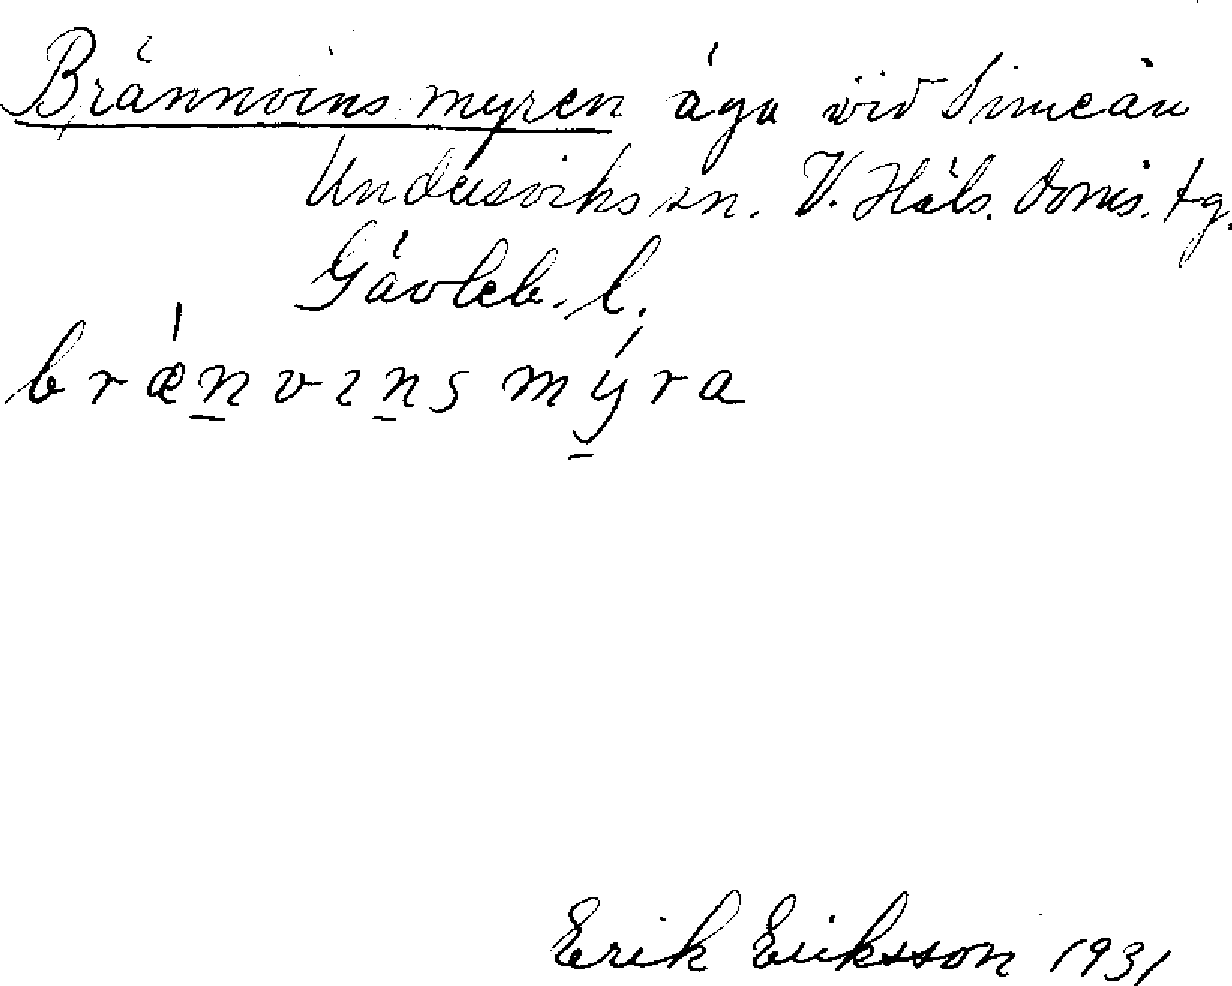 Brännvinsmyren äga vid Simeån
Undersviks sn. V. Häls. doms. tg.
Gävleb. l.
brǽn̲vın̲s mýra
Erik Eriksson 1931